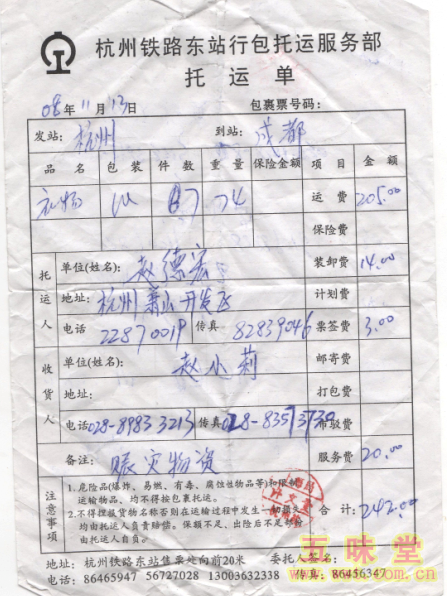 杭州铁路东站行包托运服务部
托运单
08年11月13日 包裹票号码:
发站: 杭州 到站: 成都
品名 包装 件数 重量 保险金额 项目 金额
衣物 74 运费 205.00
保险费
托运人 单位(姓名): 赵德宏 装卸费 14.00
地址: 杭州萧山开发区 计划费
电话 22870019 传真: 82839046 集签费 3.00
收货人 单位(姓名): 赵小莉 邮寄费
地址: 打包费
电话 028-89833213 传真 028-83573730 市驳费
备注: 赈灾物资 服务费 20.00
注意事项
1.危险品(爆炸、易燃、有毒、腐蚀性物品等)和限制
运输物品、均不得按包裹托运。
2.不得捏报货物名称否则在运输过程中发生一切损失
均由托运人负责赔偿。保额不足、出险后不足部份
由托运人自负。
合计: 242.00
地址: 杭州铁路东站售票处向前20米 委托人签名:
电话: 86465947 56727028 13003632338 传真: 86456347
五味堂